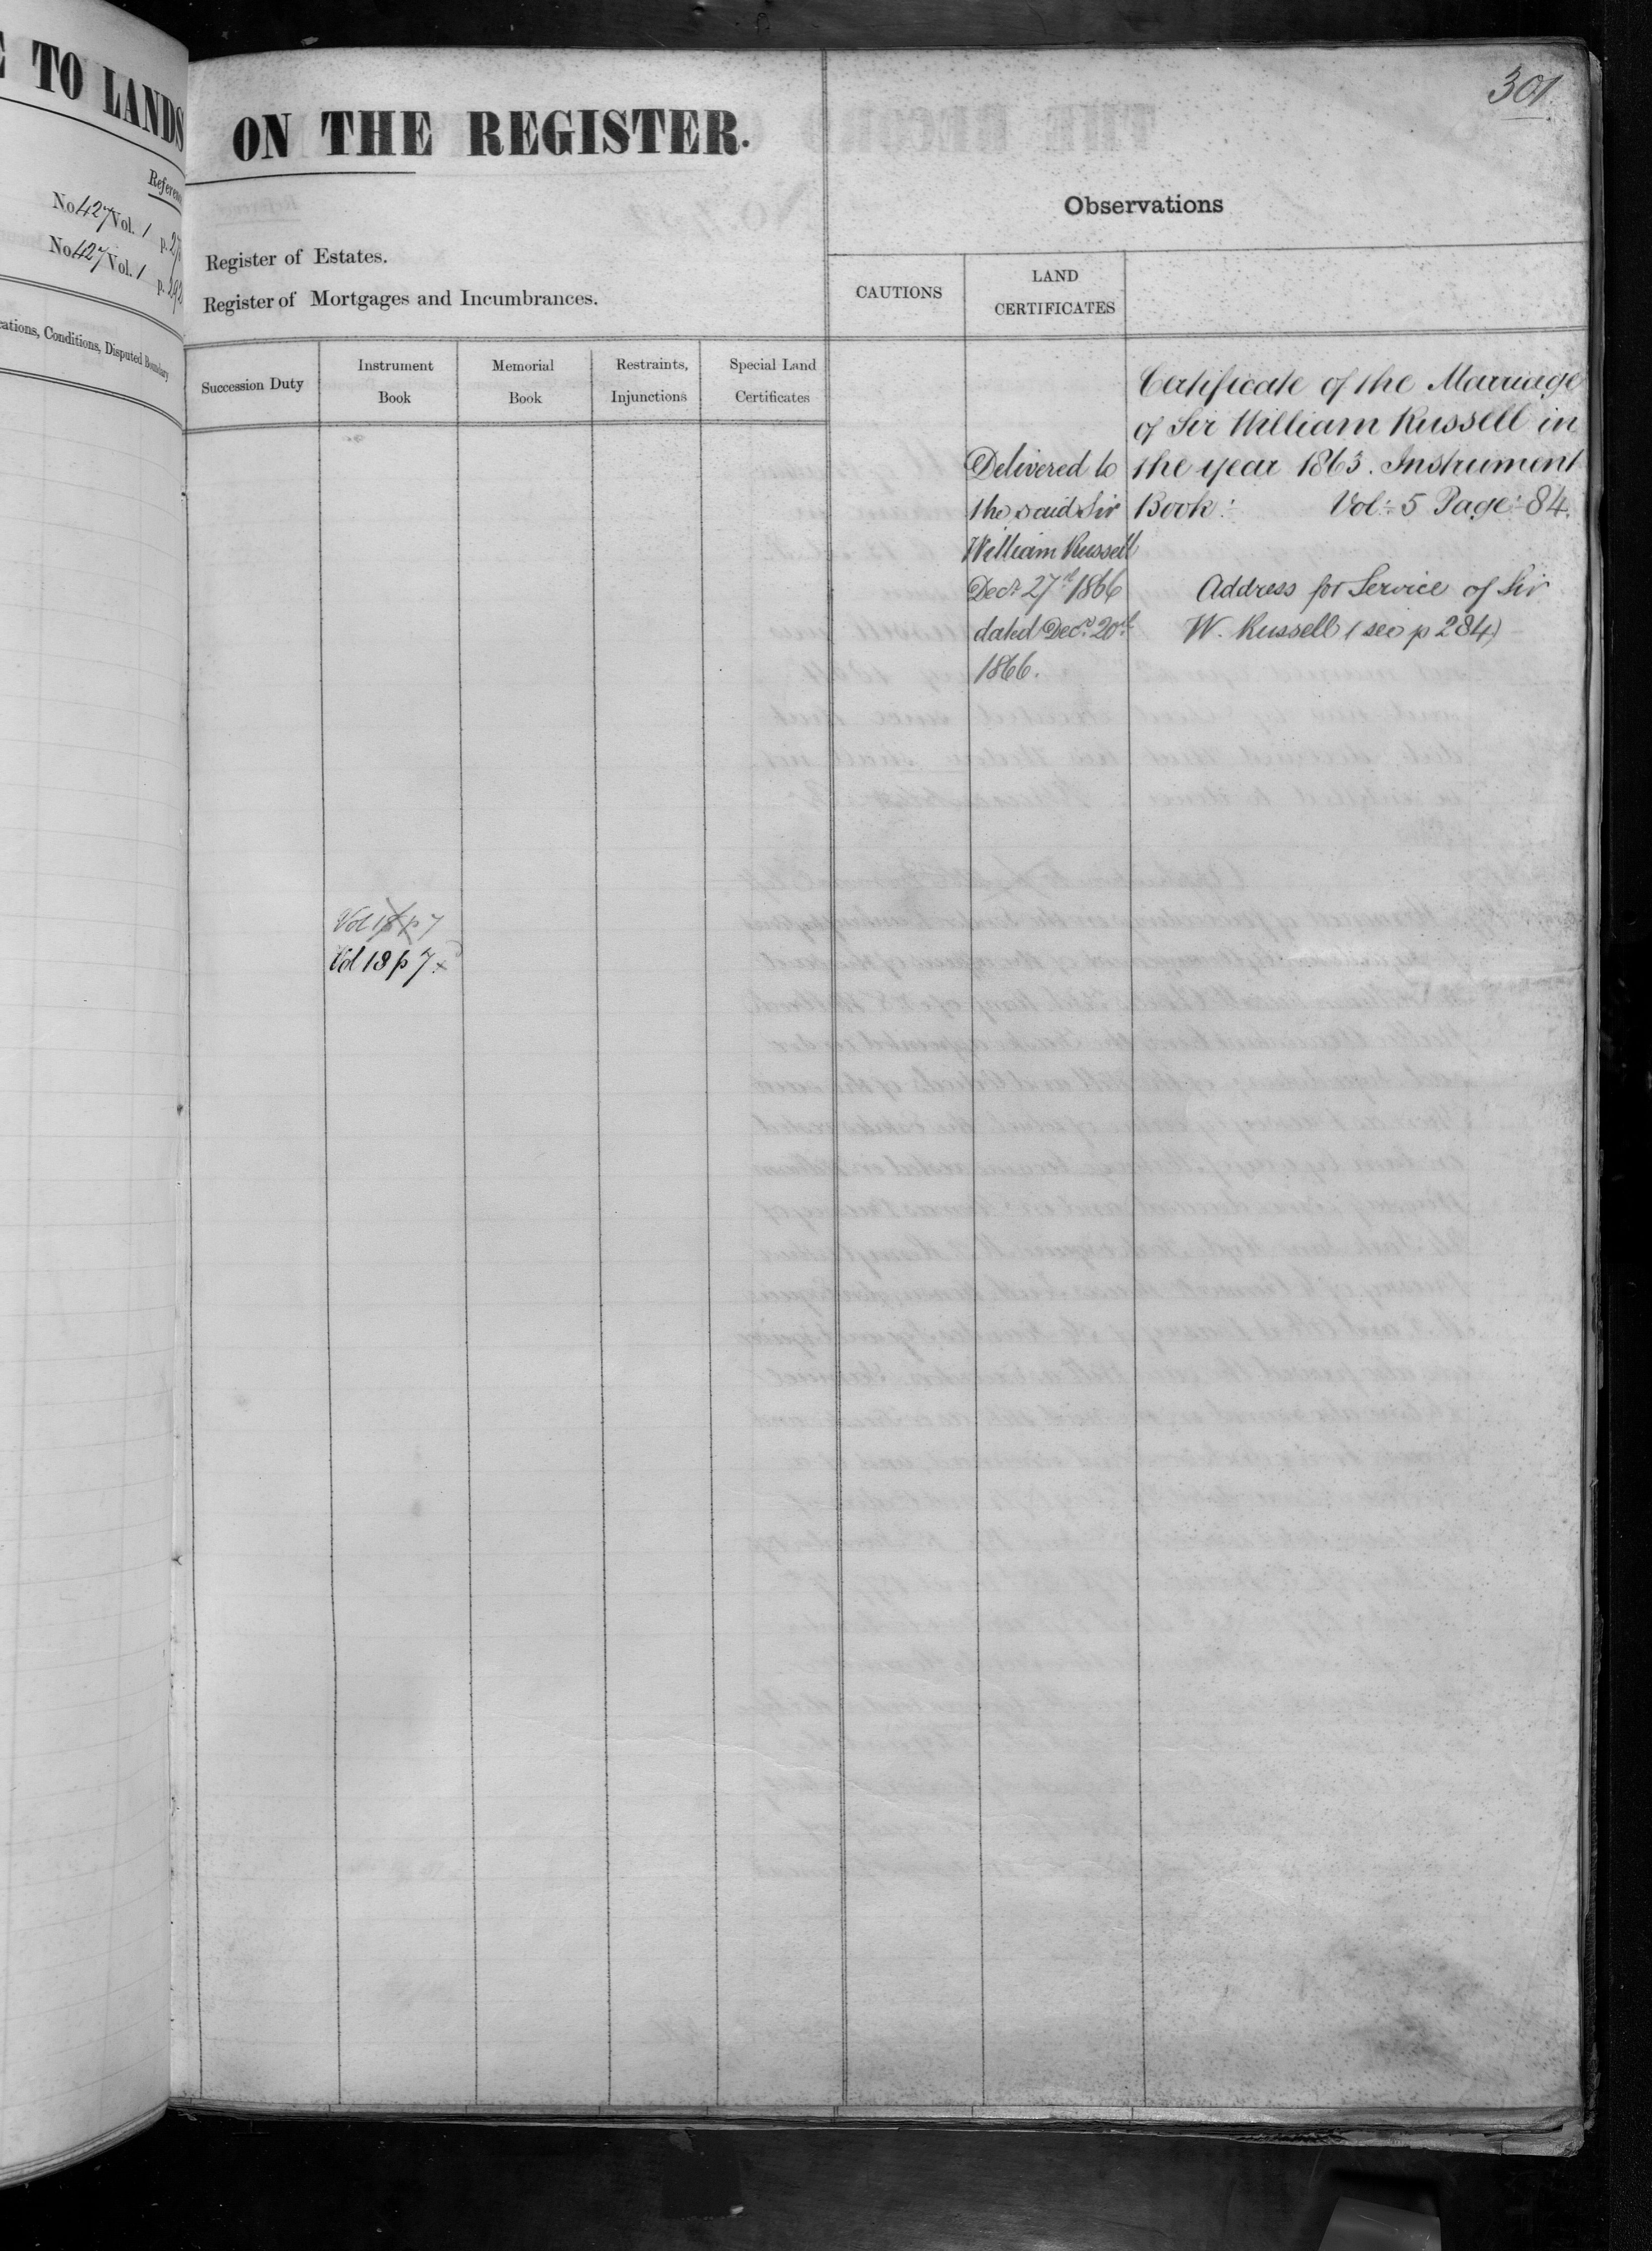 E TO LANDS
No 427 Vol. 1 p.
No 427 Vol. 1 p.
Conditions, Disputed Boundary
301
ON THE REGISTER.
Register of Estates.
Register of Mortgages and Incumbrances.
Succession Duty
Instrument
Book
Memorial
Book
Restraints,
Injunctions
Special Land
Certificates
Vol 18 p 7
Vol 18 p 7
Observations
CAUTIONS
LAND
CERTIFICATES
Delivered to
the said Sir
William Russell
Decr 27th 1866
dated Decr 20th
1866.
Certificate of the Marriage
of Sir William Russell in
the year 1863. Instrument
Book: Vol: 5 Page: 84.
Address for Service of Sir
W. Russell (see p 284)